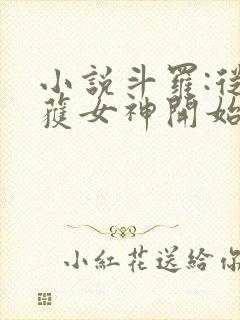 小說斗羅:從
獲女神開始
小紅花送給你